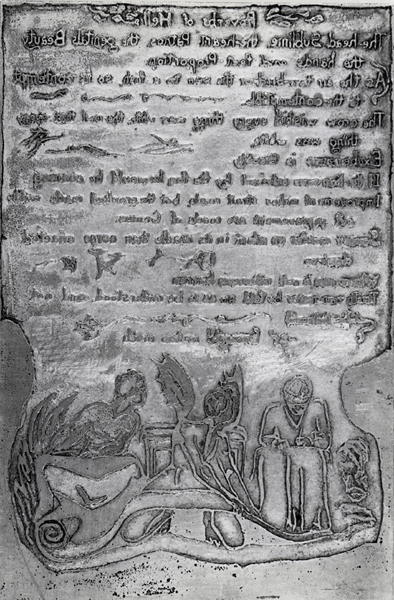 Proverbs of Hell
The head Sublime, the heart Pathos, the genitals Beauty
the hands and feet Proportion.
As the air to a bird or the sea to a fish, so is contempt
to the contemptible.
The crow wish'd every thing was black, the owl, that every
thing was white.
Exuberance is Beauty.
If the lion was advised by the fox. he would be cunning.
Improvement makes strait roads, but the crooked roads without
Improvement, are roads of Genius.
Sooner murder an infant in its cradle than nurse unacted
desires
Where man is not nature is barren.
Truth can never be told so as to be understood, and not
be believ'd.
Enough! or Too much